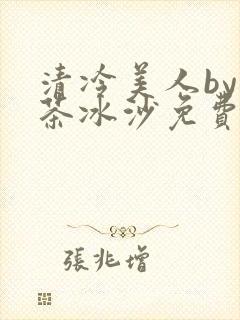 清冷美人by
茶冰沙免費
張兆增